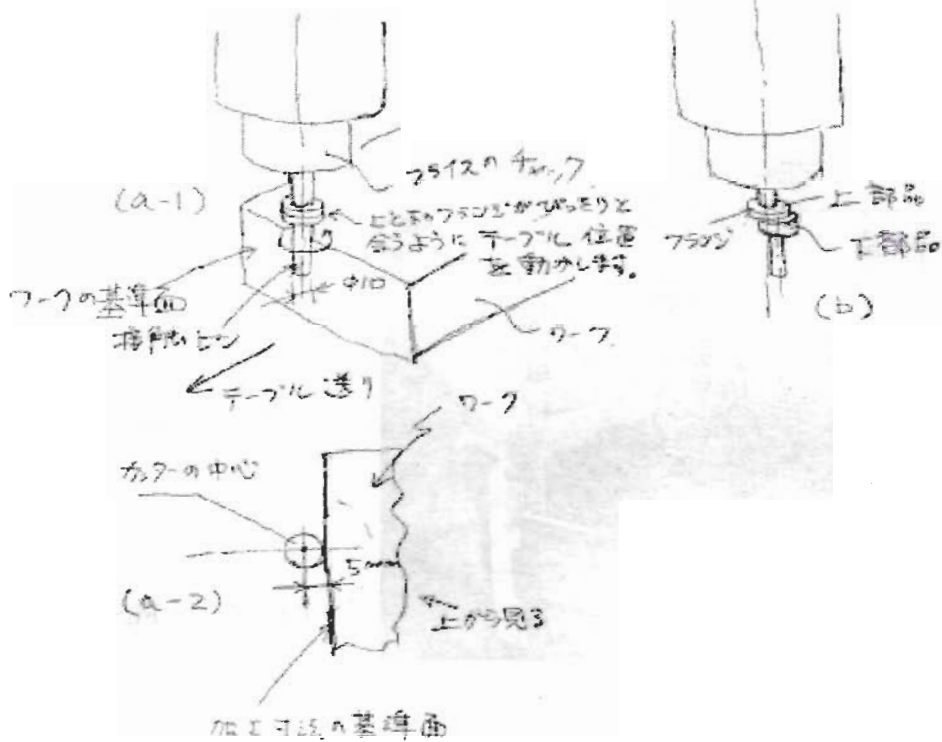 (a-1)
フライスのチャック
上と下のフランジがぴったりと
合うようにテーブル位置
を動かします。
φ10
ワークの基準面
接触ピン
ワーク
テーブル送り
フランジ
上部品
下部品
(b)
ワーク
カッターの中心
5mm
(a-2)
上から見る
加工寸法の基準面